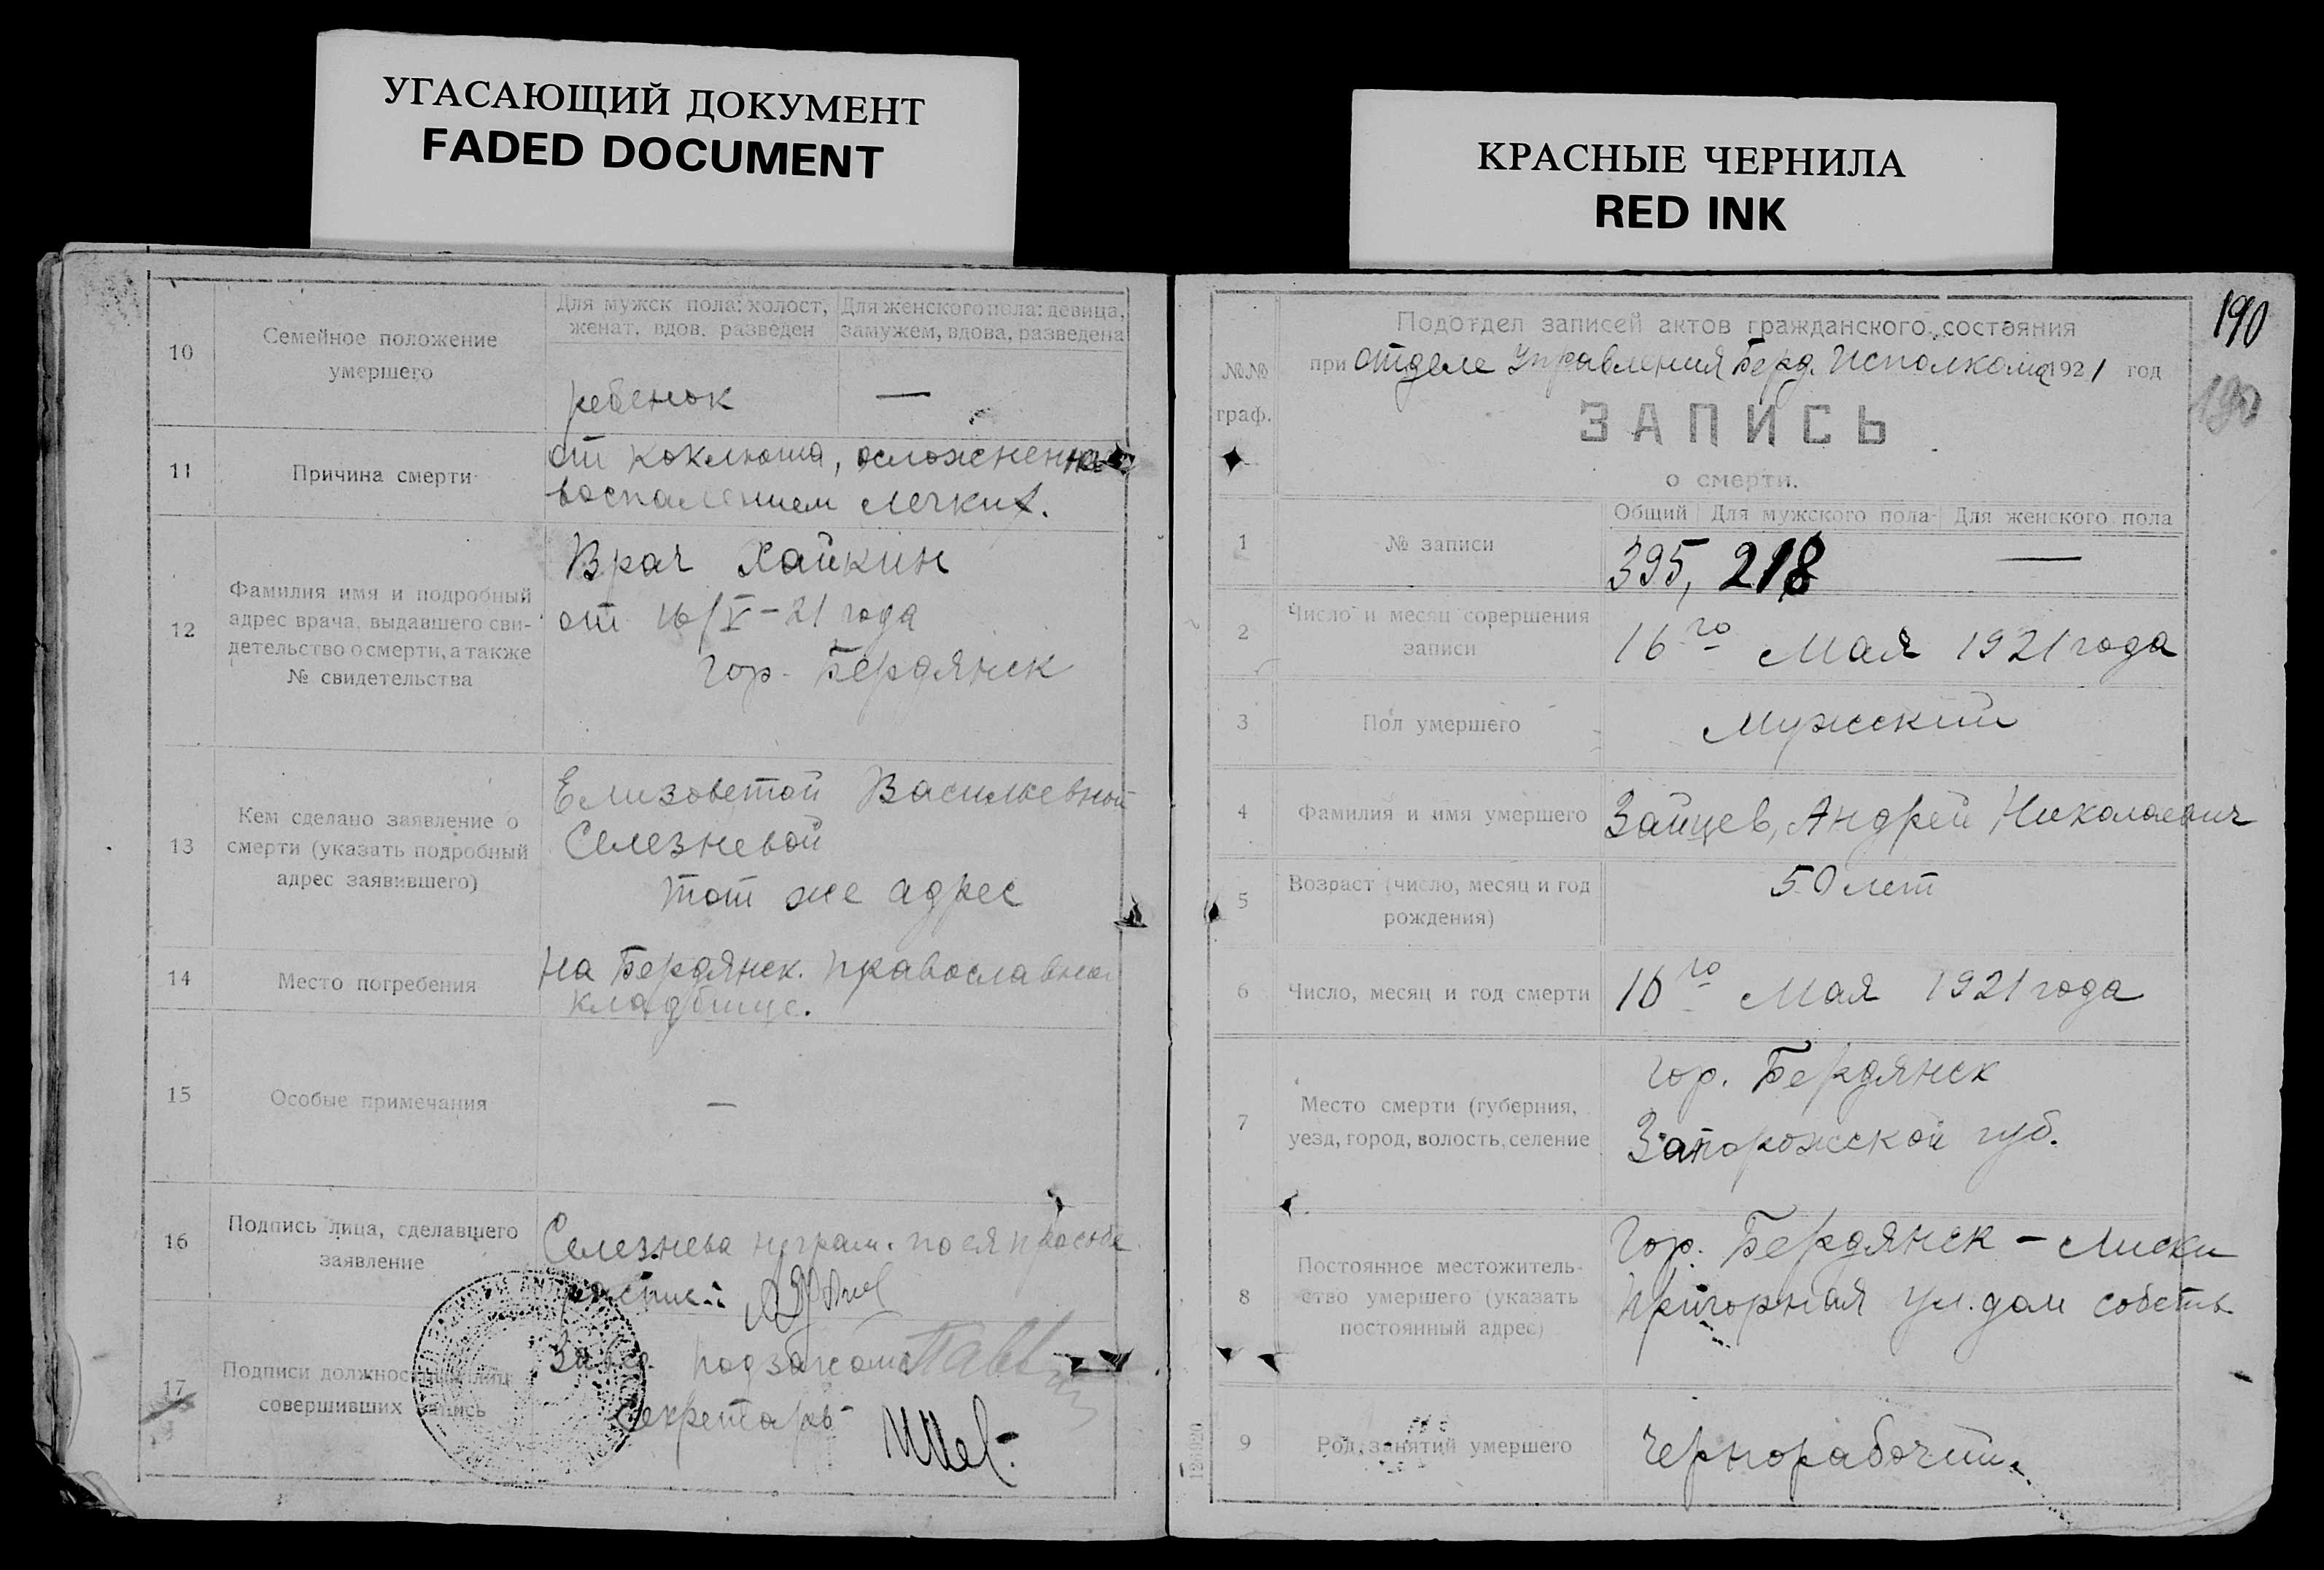 УГАСАЮЩИЙ ДОКУМЕНТ
FADED DOCUMENT
КРАСНЫЕ ЧЕРНИЛА
RED INK
10
Семейное положение
умершего
Для мужск пола: холост,
женат, вдов, разведен
Для женского пола: девица,
замужем, вдова, разведена
ребенок —
11
Причина смерти
от коклюша, осложненна
воспалением легких.
12
Фамилия имя и подробный
адрес врача, выдавшего сви-
детельство о смерти, а также
№ свидетельства
Врач Хайкин
от 16/V-21 года
гор. Бердянск
13
Кем сделано заявление о
смерти (указать подробный
адрес заявившего)
Елизоветой Васильевной
Селезневой
тот же адрес
14
Место погребения
на Бердянск. православном
кладбище.
15
Особые примечания
—
16
Подпись лица, сделавшего
заявление
Селезнева неграм. по ея просьбе
17
Подписи должностных лиц
совершивших запись
Секретарь
190
190
№№
граф.
Подотдел записей актов гражданского состояния
при отделе Управления Берд. Исполкома 1921 год
ЗАПИСЬ
о смерти.
1
№ записи
Общий Для мужского пола Для женского пола
395, 218 —
2
Число и месяц совершения
записи
16го Мая 1921 года
3
Пол умершего
Мужский
4
Фамилия и имя умершего
Зайцев, Андрей Николаевич
5
Возраст (число, месяц и год
рождения)
50 лет
6
Число, месяц и год смерти
16го Мая 1921 года
7
Место смерти (губерния,
уезд, город, волость, селение
гор. Бердянск
Запорожской губ.
8
Постоянное местожитель-
ство умершего (указать
постоянный адрес)
Гор. Бердянск - Лиски
Пригорная ул. дом собств
9
Род занятий умершего
Чернорабочий.